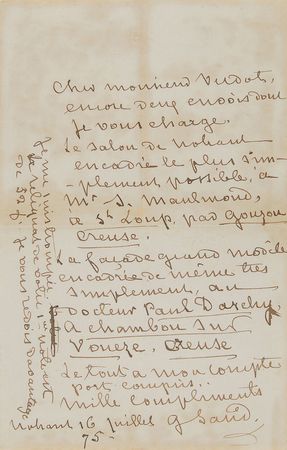 Cher monsieur Verdot,
encore deux envois dont
je vous charge.
Le salon de Nohant
encadré le plus sim-
plement possible, à
Mr S. Maulmond,
à St Loup, par Gouzon
Creuse.
La façade grand modèle
encadrée de même très
simplement, au
docteur Paul Darchy,
à Chambon sur
Voueze, Creuse
Le tout à mon compte
port compris..
Mille compliments
G Sand.
Nohant 16 juillet
75.
Je me suis trompée
le reliquat de votre 1er
de 32 f. je vous redois davantage